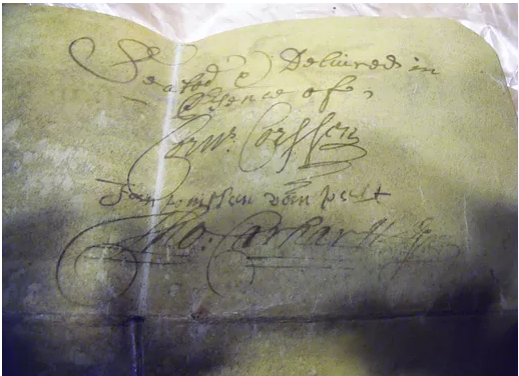 Sealed & Delivered in
Presence of,
Corn. Corssen
van pelt
Tho: Carhartt